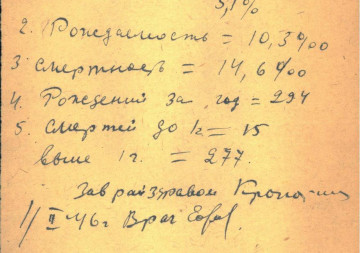 5,1%
2. Рождаемость = 10,3‰
3 Смертность = 14,6‰
4. Рождений за год = 294
5. Смертей до 1г = 15
выше 1г. = 277.
Зав райздравом
1/II 46г Врач